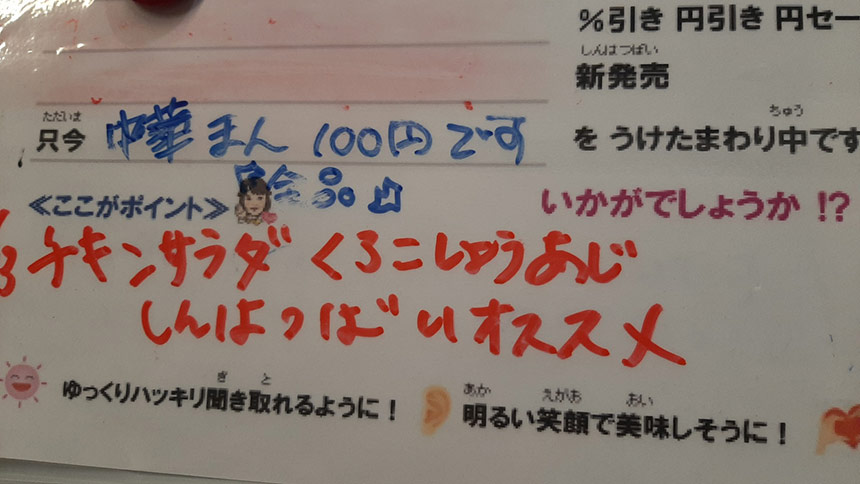 %引き 円引き 円セー
しんはつばい
新発売
ただいま
只今 中華まん 100円です
ちゅう
を うけたまわり中です
≪ここがポイント≫
いかがでしょうか !?
チキンサラダ くろこしょうあじ
しんはつばい オススメ
ゆっくりハッキリ聞き取れるように!
き と
明るい笑顔で美味しそうに!
あか えがお おい